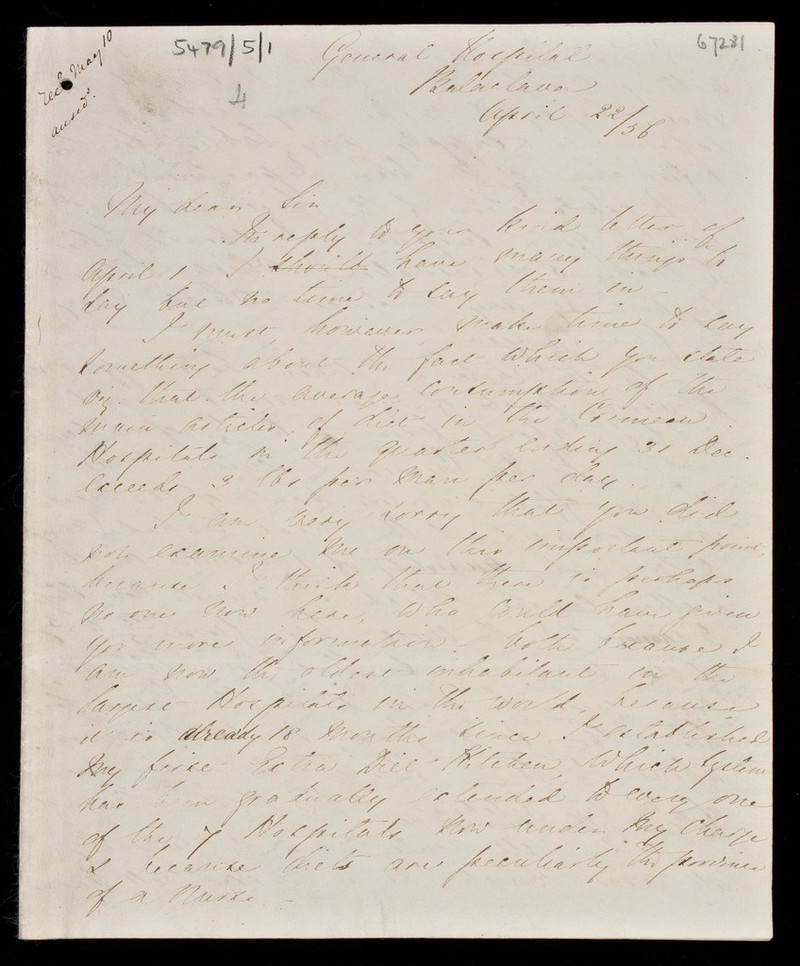 recd May 10
ansed.
5479/5/1
67281
4
General Hospital
Balaclava
April 22/56
My dear Sir
In reply to your kind letter of
April 1 I should have many things to
say but no time to say them in -
I must, however, make time to say
something about the fact which you state
viz. that the average consumption of the
main articles of diet in the Crimean
Hospitals in the quarter ending 31 Dec.
exceeds 3 lbs per man per day.
I am very sorry that you did
not examine me on this important point,
because I think that there is perhaps
no one now here, who could have given
you more information - both because I
am now the oldest inhabitant in the
largest Hospitals in the world, because
it is already 18 months since I established
my first Extra Diet Kitchen, which system
has been gradually extended to every one
of the 7 Hospitals now under my charge
& because diets are peculiarly the province
of a Nurse -